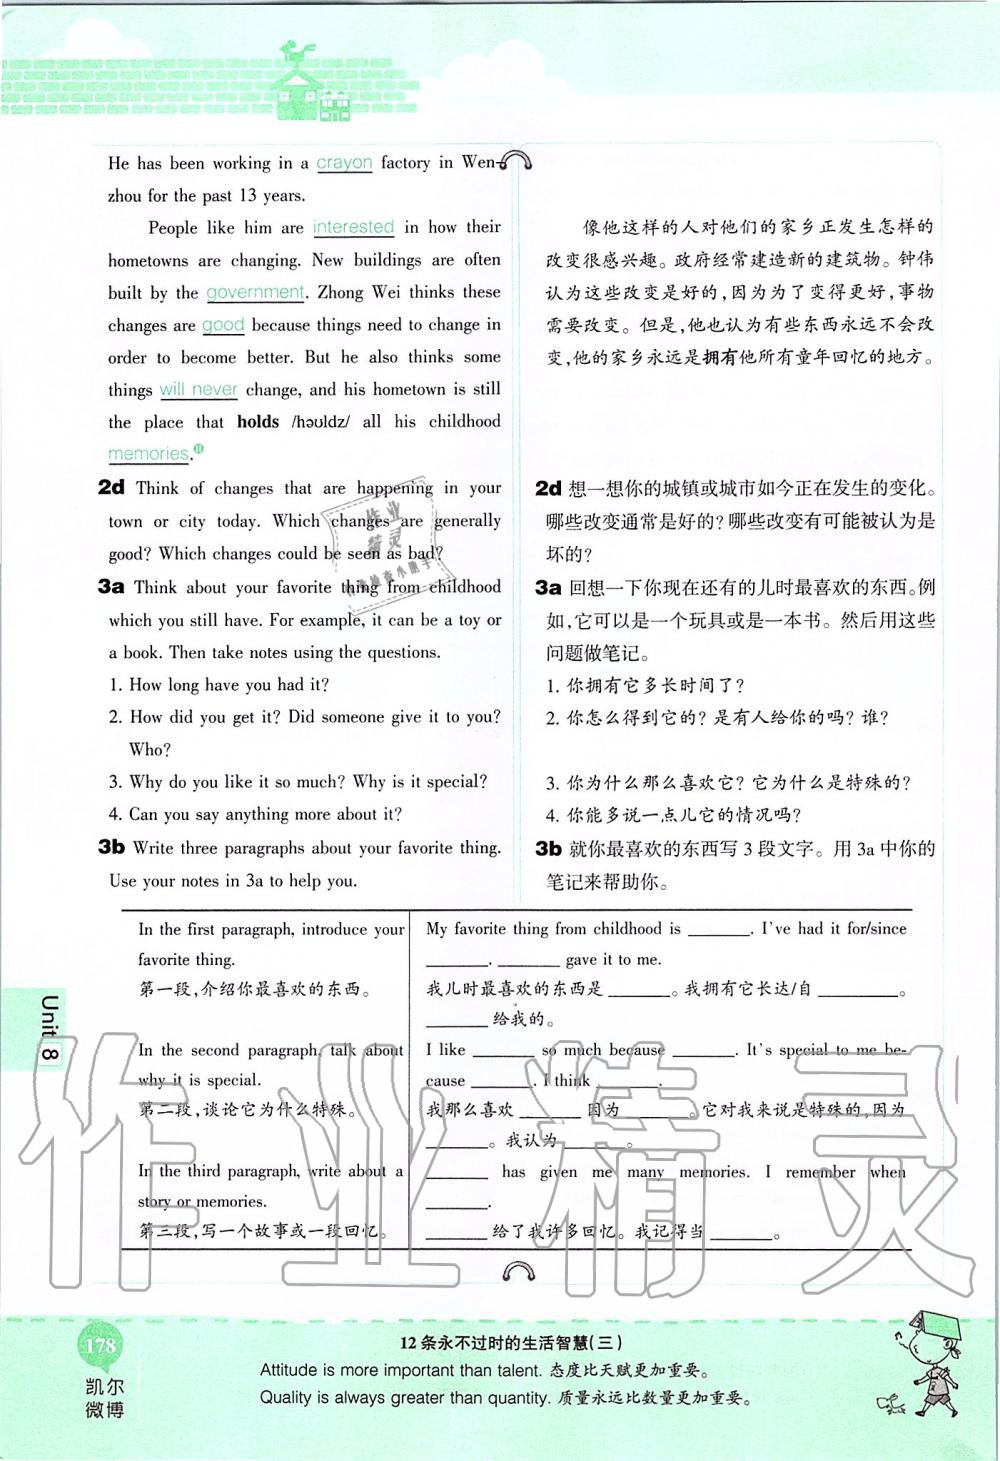 He has been working in a crayon factory in Wen-
zhou for the past 13 years.
People like him are interested in how their
hometowns are changing. New buildings are often
built by the government. Zhong Wei thinks these
changes are good because things need to change in
order to become better. But he also thinks some
things will never change, and his hometown is still
the place that holds /həʊldz/ all his childhood
memories.⑪
像他这样的人对他们的家乡正发生怎样的
改变很感兴趣。政府经常建造新的建筑物。钟伟
认为这些改变是好的,因为为了变得更好,事物
需要改变。但是,他也认为有些东西永远不会改
变,他的家乡永远是拥有他所有童年回忆的地方。
2d Think of changes that are happening in your
town or city today. Which changes are generally
good? Which changes could be seen as bad?
2d 想一想你的城镇或城市如今正在发生的变化。
哪些改变通常是好的?哪些改变有可能被认为是
坏的?
3a Think about your favorite thing from childhood
which you still have. For example, it can be a toy or
a book. Then take notes using the questions.
1. How long have you had it?
2. How did you get it? Did someone give it to you?
Who?
3. Why do you like it so much? Why is it special?
4. Can you say anything more about it?
3a 回想一下你现在还有的儿时最喜欢的东西。例
如,它可以是一个玩具或是一本书。然后用这些
问题做笔记。
1. 你拥有它多长时间了?
2. 你怎么得到它的?是有人给你的吗?谁?
3. 你为什么那么喜欢它?它为什么是特殊的?
4. 你能多说一点儿它的情况吗?
3b Write three paragraphs about your favorite thing.
Use your notes in 3a to help you.
3b 就你最喜欢的东西写 3 段文字。用 3a 中你的
笔记来帮助你。
In the first paragraph, introduce your
favorite thing.
第一段,介绍你最喜欢的东西。
My favorite thing from childhood is ______. I've had it for/since
______. ______ gave it to me.
我儿时最喜欢的东西是______。我拥有它长达/自________。
______给我的。
In the second paragraph, talk about
why it is special.
第二段,谈论它为什么特殊。
I like ______ so much because ______. It's special to me be-
cause ______. I think ______.
我那么喜欢______因为______。它对我来说是特殊的,因为
______。我认为______。
In the third paragraph, write about a
story or memories.
第三段,写一个故事或一段回忆。
______ has given me many memories. I remember when
______.
______给了我许多回忆。我记得当______。
Unit 8
作业精灵
作业
精灵
178
凯尔
微博
12 条永不过时的生活智慧(三)
Attitude is more important than talent. 态度比天赋更加重要。
Quality is always greater than quantity. 质量永远比数量更加重要。